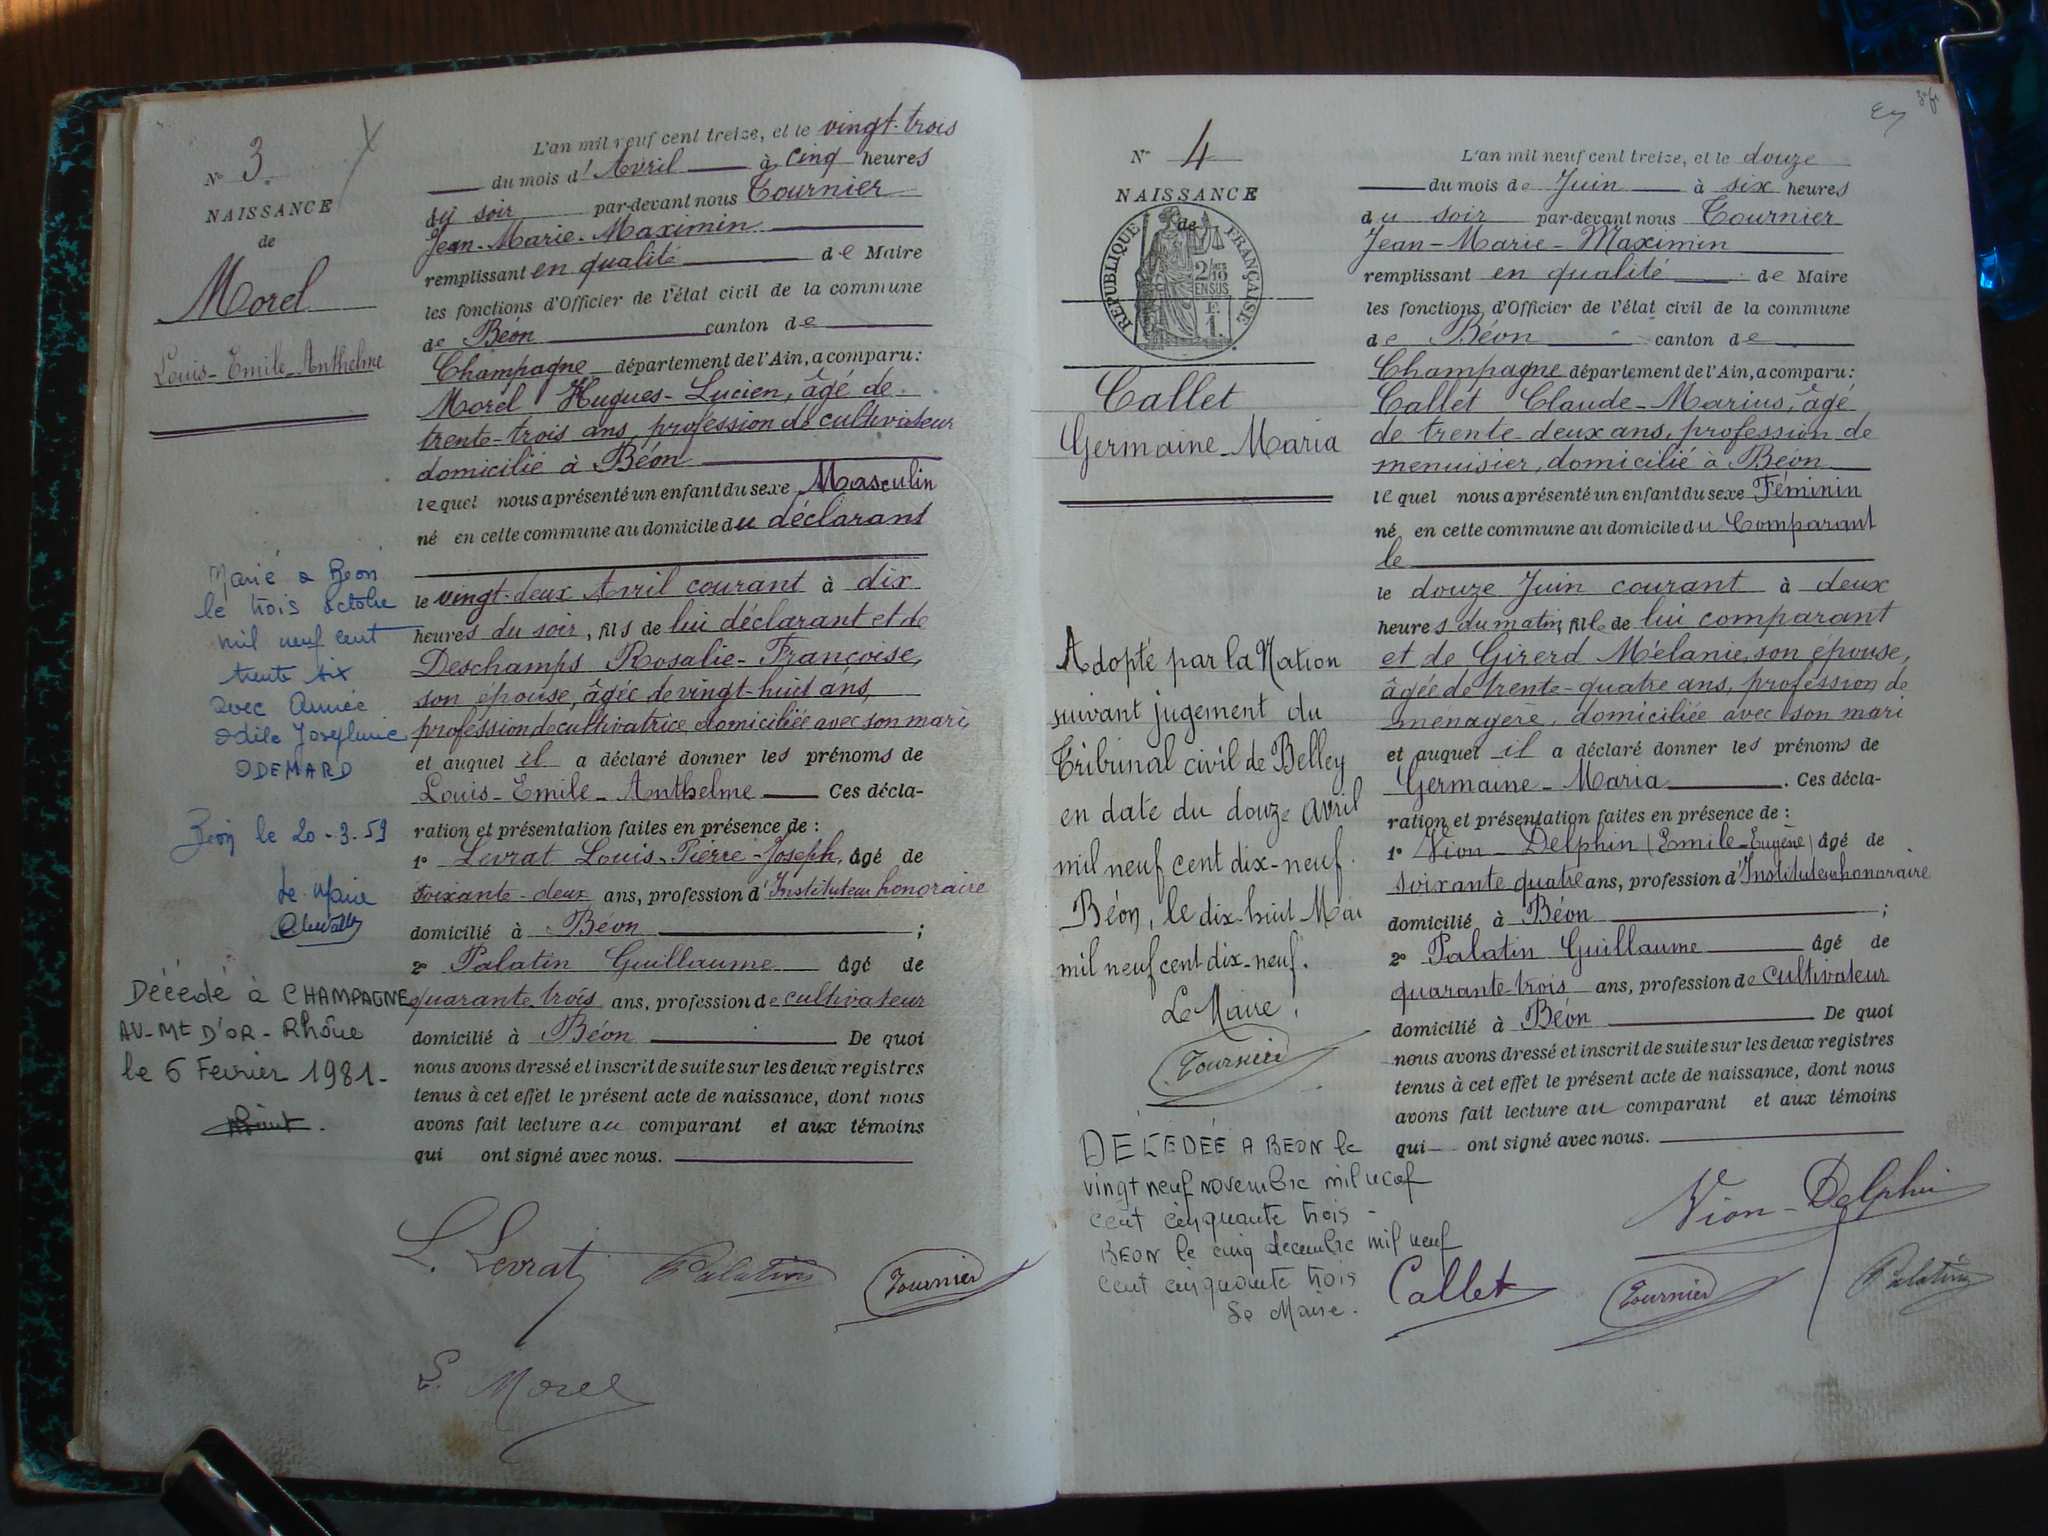 N° 3
NAISSANCE
de
Morel
Louis-Emile-Anthelme
Marié à Béon
le trois octobre
mil neuf cent
trente six
avec Aimée
Odile Joséphine
ODEMARD
Béon le 20-3-59
Le Maire
Décédé à CHAMPAGNE
AU-Mt D'OR-Rhône
le 6 Février 1981-
L'an mil neuf cent treize, et le vingt-trois
du mois d'Avril à cinq heures
du soir par-devant nous Tournier
Jean-Marie-Maximin
remplissant en qualité de Maire
les fonctions d'Officier de l'état civil de la commune
de Béon canton de
Champagne département de l'Ain, a comparu:
Morel Hugues-Lucien, âgé de
trente-trois ans, profession de cultivateur
domicilié à Béon
lequel nous a présenté un enfant du sexe Masculin
né en cette commune au domicile du déclarant
le vingt-deux Avril courant à dix
heures du soir, fils de lui déclarant et de
Deschamps Rosalie-Françoise,
son épouse, âgée de vingt-huit ans,
profession de cultivatrice domiciliée avec son mari
et auquel il a déclaré donner les prénoms de
Louis-Emile-Anthelme Ces décla-
ration et présentation faites en présence de :
1° Levrat Louis-Pierre-Joseph, âgé de
soixante-deux ans, profession d'Instituteur honoraire
domicilié à Béon ;
2° Palatin Guillaume âgé de
quarante-trois ans, profession de cultivateur
domicilié à Béon De quoi
nous avons dressé et inscrit de suite sur les deux registres
tenus à cet effet le présent acte de naissance, dont nous
avons fait lecture au comparant et aux témoins
qui ont signé avec nous.
L. Levrat Palatin Tournier
L. Morel
N° 4
NAISSANCE
de
RÉPUBLIQUE FRANÇAISE
2/10
EN SUS
F.
1.
Callet
Germaine-Maria
Adopté par la Nation
suivant jugement du
Tribunal civil de Belley
en date du douze avril
mil neuf cent dix-neuf.
Béon, le dix-huit Mai
mil neuf cent dix-neuf.
Le Maire,
Tournier
DECEDÉE A BEON le
vingt neuf novembre mil neuf
cent cinquante trois -
BEON le cinq decembre mil neuf
cent cinquante trois
Le Maire.
L'an mil neuf cent treize, et le douze
du mois de Juin à six heures
du soir par-devant nous Tournier
Jean-Marie-Maximin
remplissant en qualité de Maire
les fonctions d'Officier de l'état civil de la commune
de Béon canton de
Champagne département de l'Ain, a comparu:
Callet Claude-Marius, âgé
de trente-deux ans, profession de
menuisier, domicilié à Béon
lequel nous a présenté un enfant du sexe Féminin
né en cette commune au domicile du Comparant
le
le douze Juin courant à deux
heures du matin, fille de lui comparant
et de Girerd Mélanie, son épouse,
âgée de trente-quatre ans, profession de
ménagère, domiciliée avec son mari
et auquel il a déclaré donner les prénoms de
Germaine-Maria. Ces décla-
ration et présentation faites en présence de :
1° Vion-Delphin (Emile-Eugène) âgé de
soixante quatre ans, profession d'Instituteur honoraire
domicilié à Béon ;
2° Palatin Guillaume âgé de
quarante-trois ans, profession de cultivateur
domicilié à Béon De quoi
nous avons dressé et inscrit de suite sur les deux registres
tenus à cet effet le présent acte de naissance, dont nous
avons fait lecture au comparant et aux témoins
qui ont signé avec nous.
Vion-Delphin
Callet Tournier Palatin